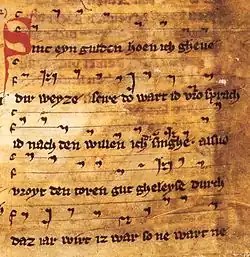 Sint eyn gulden hoen ich gheve
dir weyze so wart is vro sprach
is nach den willen ich singhe also
vroyt den toren gut gheleyse durch
daz iar wirt iz war so ne wart ne